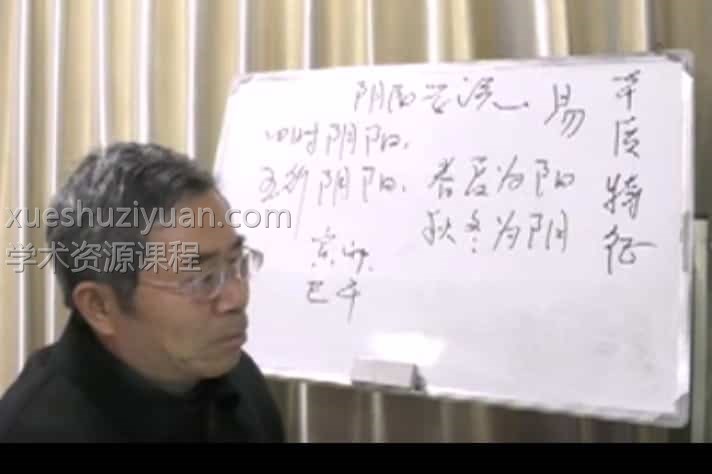 阴阳学说 易
四时阴阳.
五行阴阳. 春夏为阳
秋冬为阴
本质特征
xueshuziyuan.com
学术资源课程